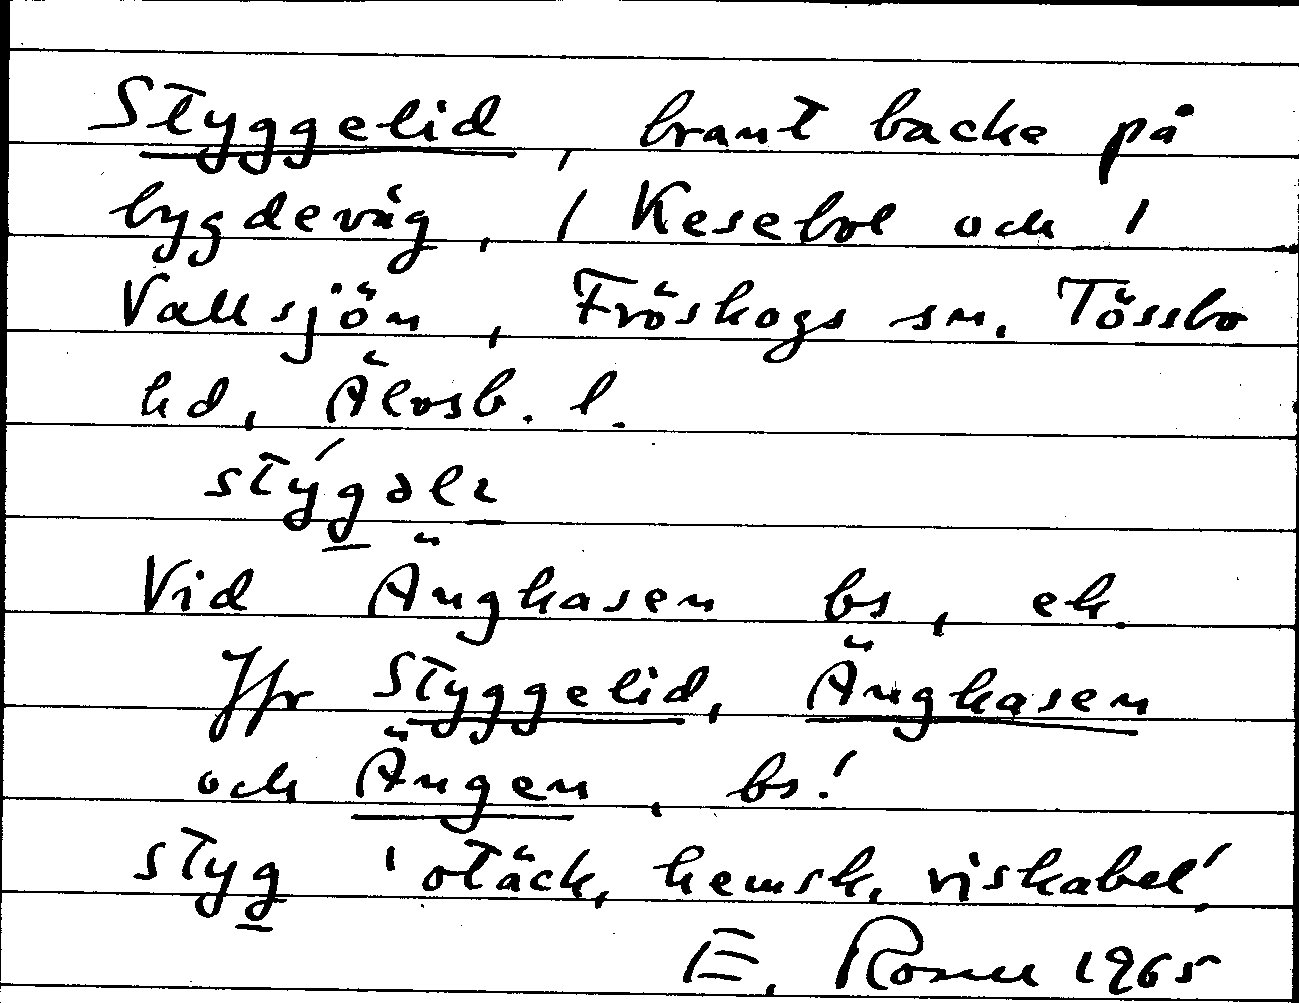 Styggelid, brant backe på
bygdeväg, / Kesebol och /
Vallsjön, Fröskogs sn, Tössbo
hd, Älvsb. l.
Vid Ängkasen bs, ek.
Jfr Styggelid, Ängkasen
och Ängen, bs!
styg 'otäck, hemsk, riskabel'.
E. Rosell 1965